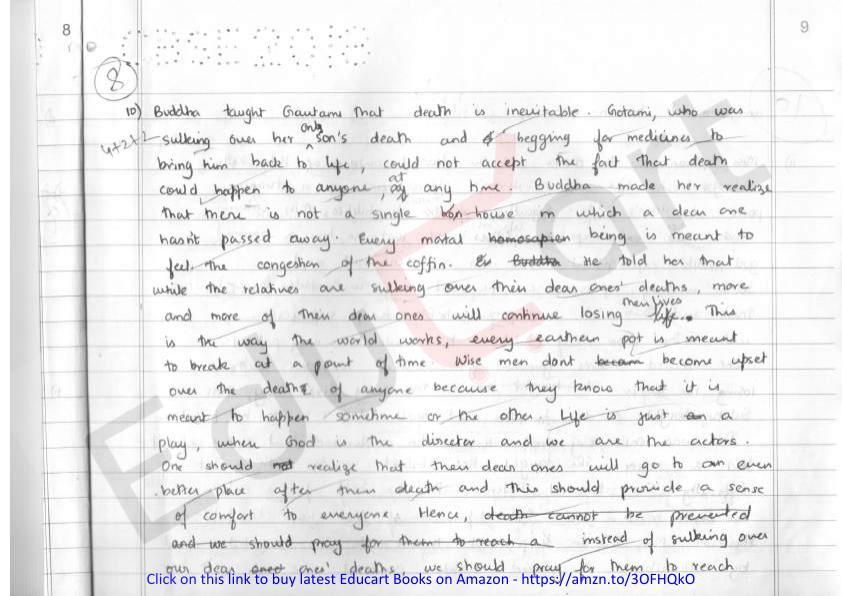 8
9
CBSE 2019
8
10) Buddha taught Gautami that death is inevitable. Gotami, who was
4+2+2 sulking over her only son's death and begging for medicines to
bring him back to life, could not accept the fact that death
could happen to anyone, at any time. Buddha made her realize
that there is not a single house in which a dear one
hasn't passed away. Every mortal homosapien being is meant to
feel the congestion of the coffin. Buddha He told her that
while the relatives are sulking over their dear ones' deaths, more
and more of their dear ones will continue losing their lives life. This
is the way the world works, every earthern pot is meant
to break at a point of time. Wise men dont becam become upset
over the death of anyone because they know that it is
meant to happen sometime or the other. Life is just an a
play, when God is the director and we are the actors.
One should not realize that their dear ones will go to an even
better place after them death and this should provide a sense
of comfort to everyone. Hence, death cannot be prevented
and we should pray for them to reach a instead of sulking over
our dear ones' deaths, we should pray for them to reach
Educart
Click on this link to buy latest Educart Books on Amazon - https://amzn.to/3OFHQkO